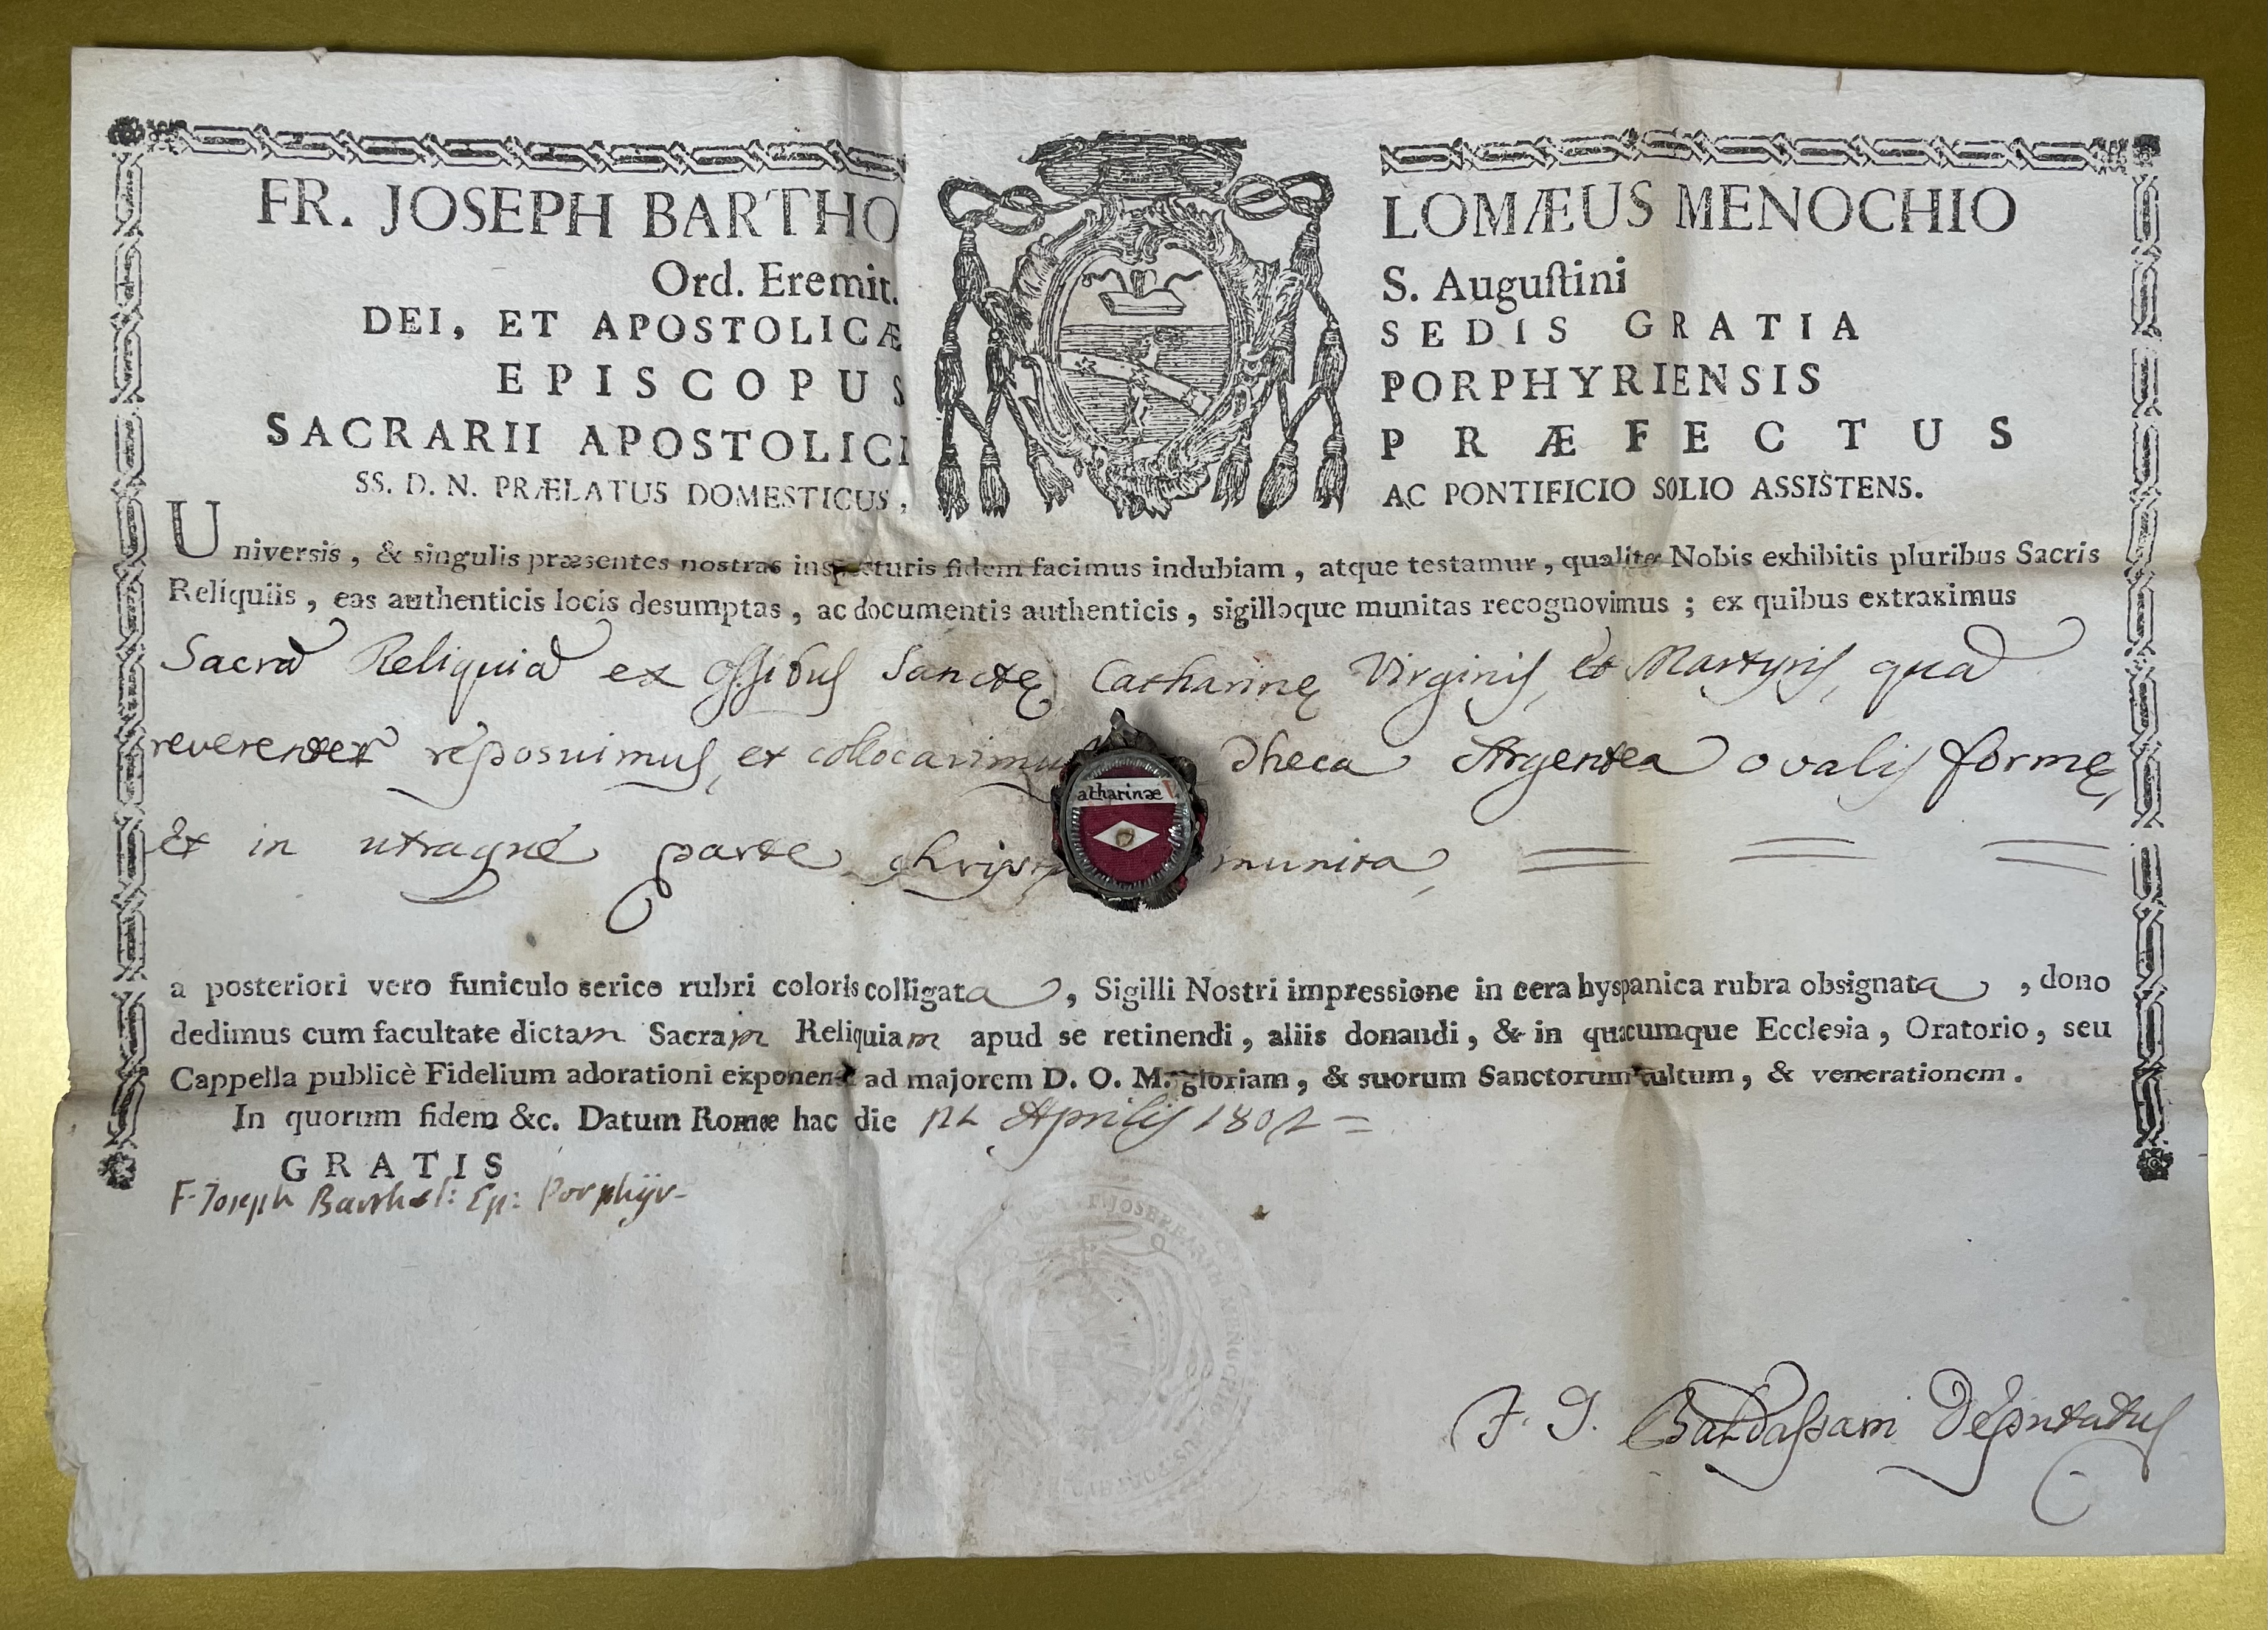 FR. JOSEPH BARTHOLOMÆUS MENOCHIO
Ord. Eremit. S. Auguſtini
DEI, ET APOSTOLICÆ SEDIS GRATIA
EPISCOPUS PORPHYRIENSIS
SACRARII APOSTOLICI PRÆFECTUS
SS. D. N. PRÆLATUS DOMESTICUS, AC PONTIFICIO SOLIO ASSISTENS.
Universis, & singulis præsentes nostras inspecturis fidem facimus indubiam, atque testamur, qualiter Nobis exhibitis pluribus Sacris
Reliquiis, eas authenticis locis desumptas, ac documentis authenticis, sigilloque munitas recognovimus; ex quibus extraximus
Sacrā Reliquiā ex ossibus Sanctę Catharinę Virginis, et Martyris, quā
reverenter reposuimus, et collocavimus Theca Argentea ovalis formę,
atharinæ V.
et in utraque parte christ munita,
a posteriori vero funiculo serico rubri coloris colligata, Sigilli Nostri impressione in cera hyspanica rubra obsignata, dono
dedimus cum facultate dictam Sacram Reliquiam apud se retinendi, aliis donandi, & in quacumque Ecclesia, Oratorio, seu
Cappella publicè Fidelium adorationi exponendi ad majorem D. O. M. gloriam, & suorum Sanctorum cultum, & venerationem.
In quorum fidem &c. Datum Romæ hac die 12 Aprilis 1802
GRATIS
F. Joseph Barthol: Ep: Porphyr
F. JOSEPH BARTH MENOCHIO
F. J. Baldassarri Deputatus